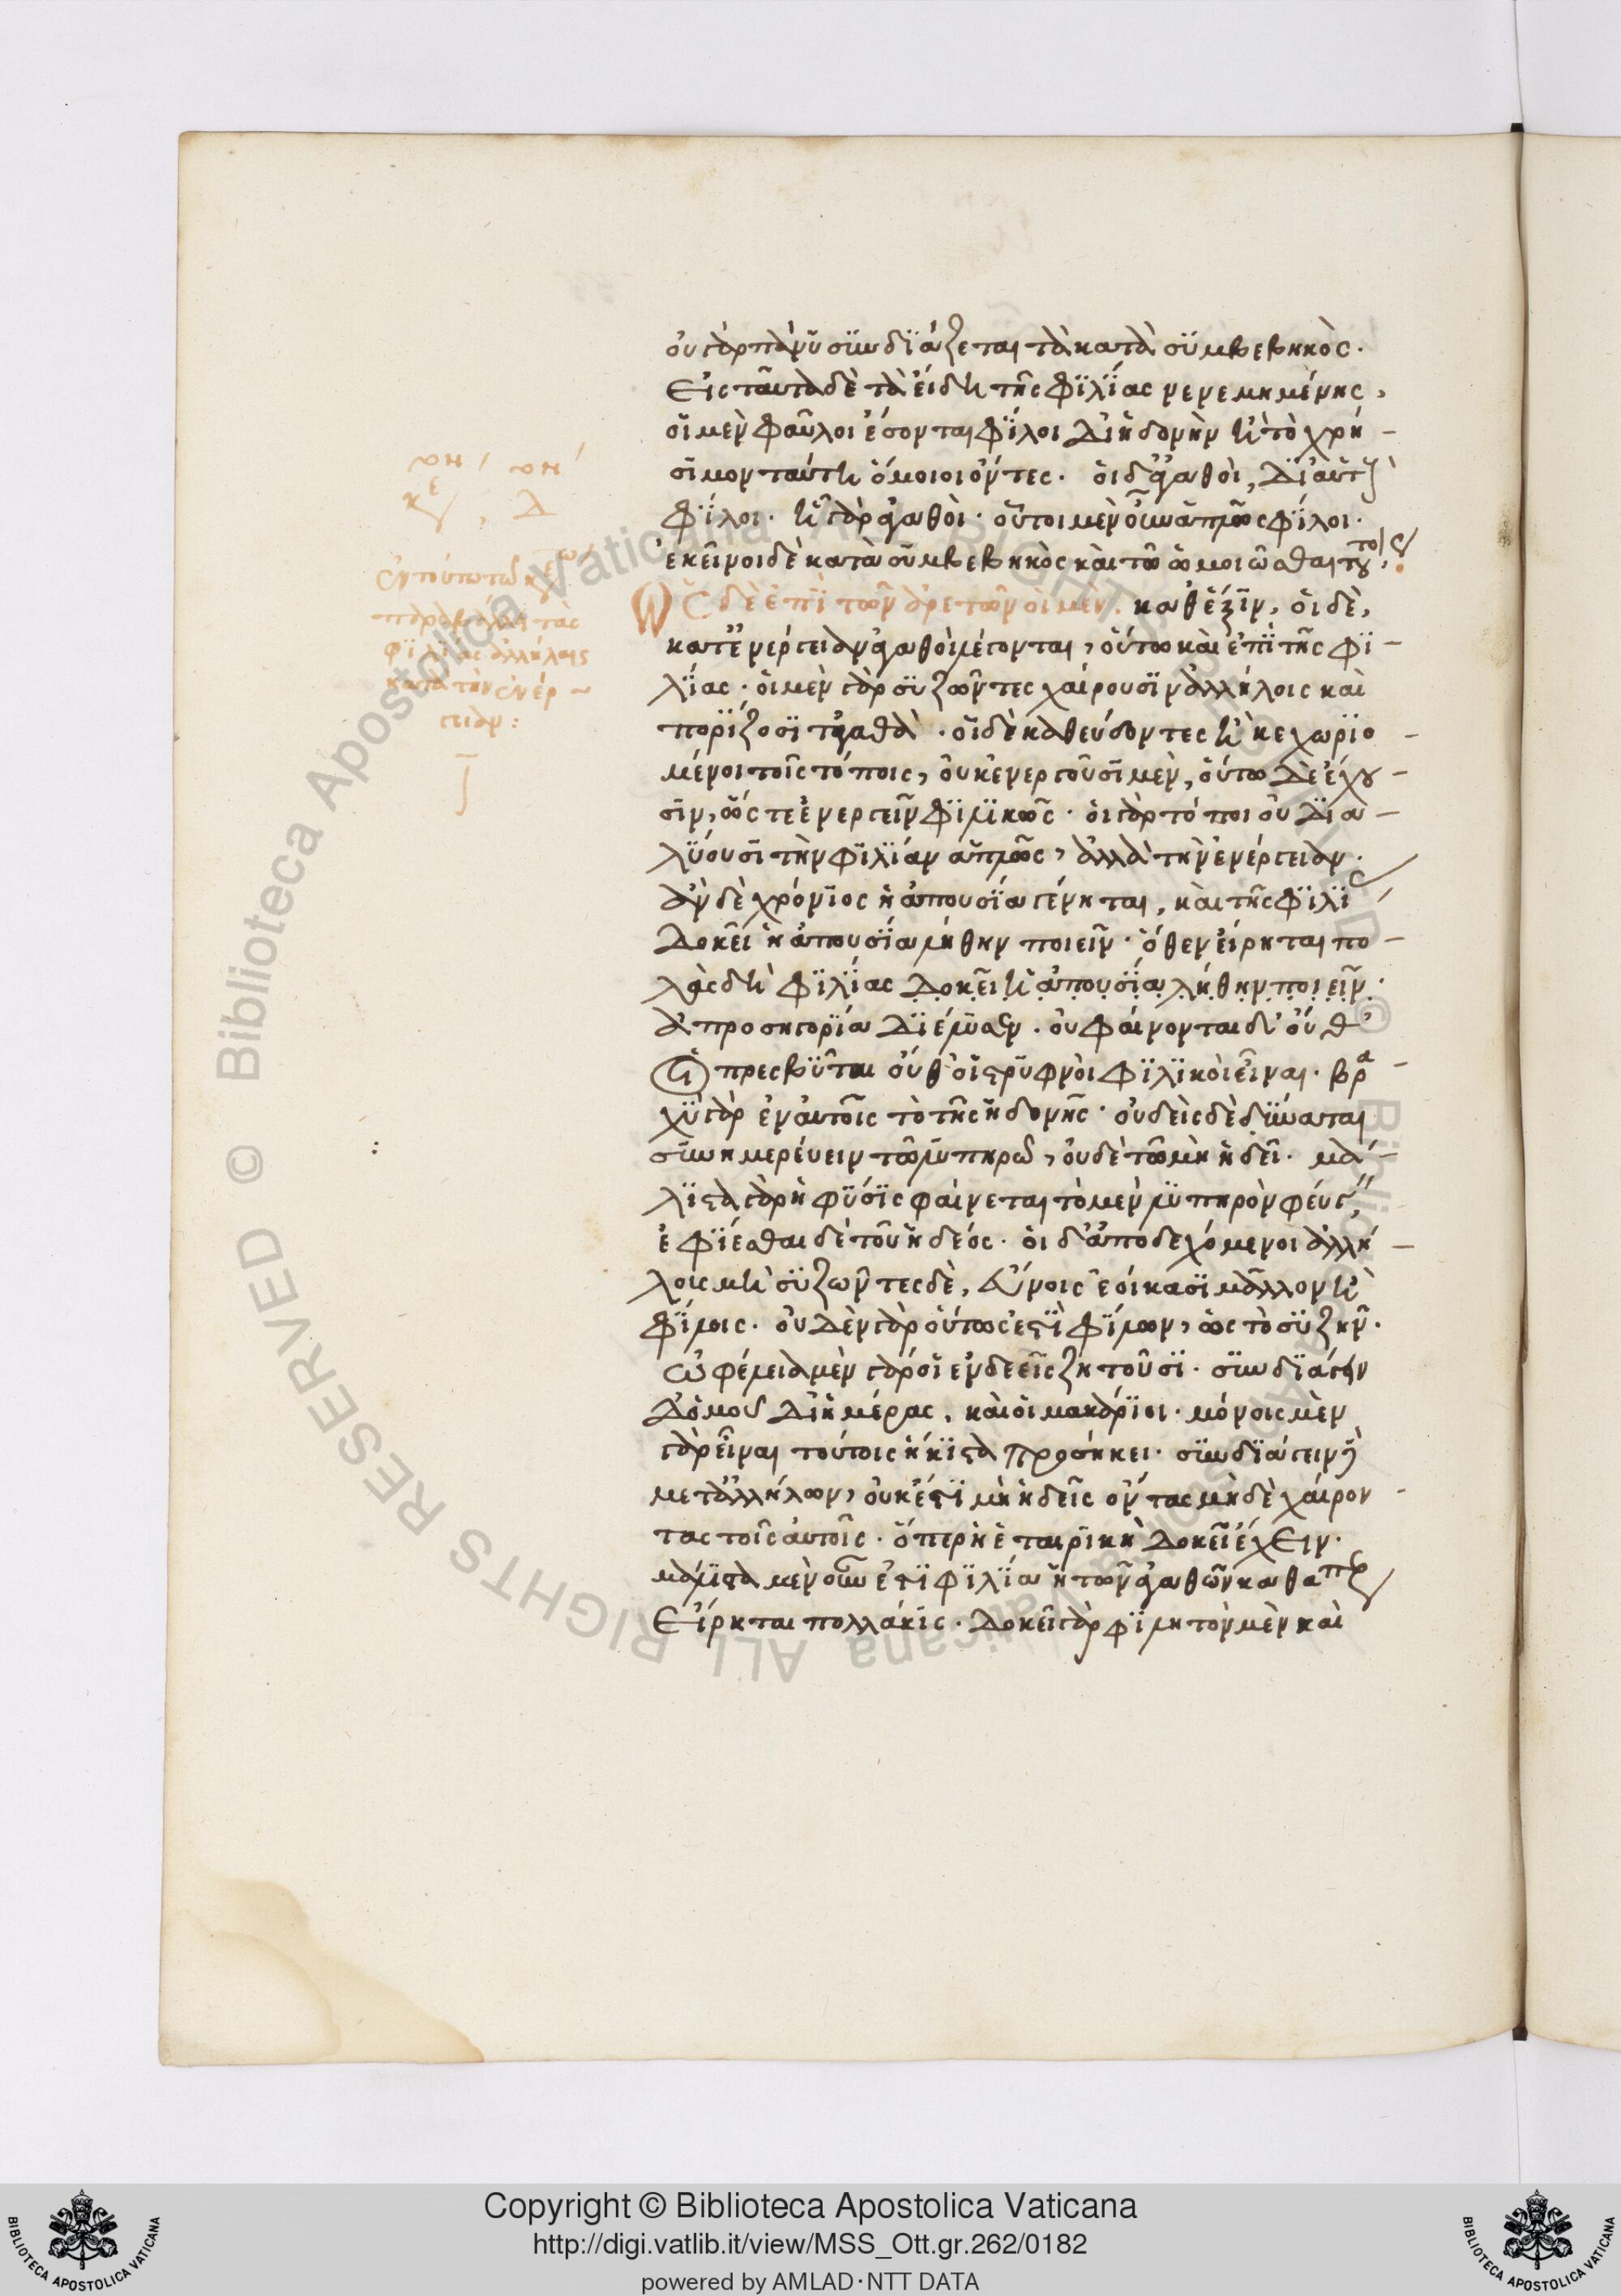 οὐ γὰρ πάνυ συνδυάζεται τὰ κατὰ συμβεβηκὸς.
Εἰς ταῦτα δὲ τὰ εἴδη τῆς φιλίας νενεμημένης,
οἱ μὲν φαῦλοι ἔσονται φίλοι δι' ἡδονὴν ἢ τὸ χρή-
σιμον ταύτη ὅμοιοι ὄντες. οἱ δ' ἀγαθοὶ, δι' αὑτοὺς
φίλοι. ἧ γὰρ ἀγαθοὶ. οὗτοι μὲν οὖν ἁπλῶς φίλοι.
ἐκεῖνοι δὲ κατὰ συμβεβηκὸς καὶ τῶ ὡμοιῶσθαι τούτοις.
Ὥς δὲ ἐπὶ τῶν ἀρετῶν οἱ μὲν. καθ' ἕξιν, οἱ δὲ,
κατ' ἐνέργειαν ἀγαθοὶ λέγονται, οὕτω καὶ ἐπὶ τῆς φι-
λίας. οἱ μὲν γὰρ συζῶντες χαίρουσιν ἀλλήλοις καὶ
πορίζουσι τἀγαθὰ. οἱ δὲ καθεύδοντες ἢ κεχωρισ-
μένοι τοῖς τόποις, οὐκ ἐνεργοῦσι μὲν, οὕτω δὲ ἔχου-
σιν, ὥς τε ἐνεργεῖν φιλικῶς. οἱ γὰρ τόποι οὐ δια-
λύουσι τὴν φιλίαν ἁπλῶς, ἀλλὰ τὴν ἐνέργειαν.
ἂν δὲ χρόνιος ἡ ἀπουσία γένηται, καὶ τῆς φιλίας
δοκεῖ ἡ ἀπουσία λήθην ποιεῖν. ὅθεν εἴρηται πο-
λὰς δὴ φιλίας δοκεῖ ἡ ἀπουσία λήθην ποιεῖν.
ἀπροσηγορία διέλυσεν. οὐ φαίνονται δ' οὔθ'
οἱ πρεσβῦται οὔθ' οἱ στρυφνοὶ φιλικοὶ εἶναι. βρα-
χὺ γὰρ ἐν αὐτοῖς τὸ τῆς ἡδονῆς. οὐδεὶς δὲ δύναται
συνημερεύειν τῶ λυπηρῶ, οὐδὲ τῶ μὴ ἡδεῖ. μά-
λιστα γὰρ ἡ φύσις φαίνεται τὸ μὲν λυπηρὸν φεύγειν,
ἐφίεσθαι δὲ τοῦ ἡδέος. οἱ δ' ἀποδεχόμενοι ἀλλή-
λους μὴ συζῶντες δὲ, εὔνοις ἐοίκασι μᾶλλον ἢ
φίλοις. οὐδὲν γὰρ οὕτως ἐστὶ φίλων, ὡς τὸ συζῆν.
ὠφέλεια μὲν γὰρ οἱ ἐνδεεῖς ζητοῦσι. συνδιάγειν
δὁλους δι' ἡμέρας, καὶ οἱ μακάριοι. μόνοις μὲν
γὰρ εἶναι τούτοις ἥκιστα προσήκει. συνδιάγειν δὲ
μετ' ἀλλήλων, οὐκ ἔστι μὴ ἡδεῖς ὄντας μὴ δὲ χαίρον-
τας τοῖς αὐτοῖς. ὅπερ ἡ ἑταιρικὴ δοκεῖ ἔχειν.
μάλιστα μὲν οὖν ἐστὶ φιλία ἡ τῶν ἀγαθῶν καθαπερ
Εἴρηται πολλάκις. δοκεῖ γὰρ φιλητὸν μὲν καὶ
παραβάλλει τὰς
φιλίας ἀλλήλαις
κατὰ τὴν ἐνέρ-
γειαν:
Copyright © Biblioteca Apostolica Vaticana
http://digi.vatlib.it/view/MSS_Ott.gr.262/0182
powered by AMLAD·NTT DATA
BIBLIOTECA APOSTOLICA VATICANA
BIBLIOTECA APOSTOLICA VATICANA
© Biblioteca Apostolica Vaticana ALL RIGHTS RESERVED